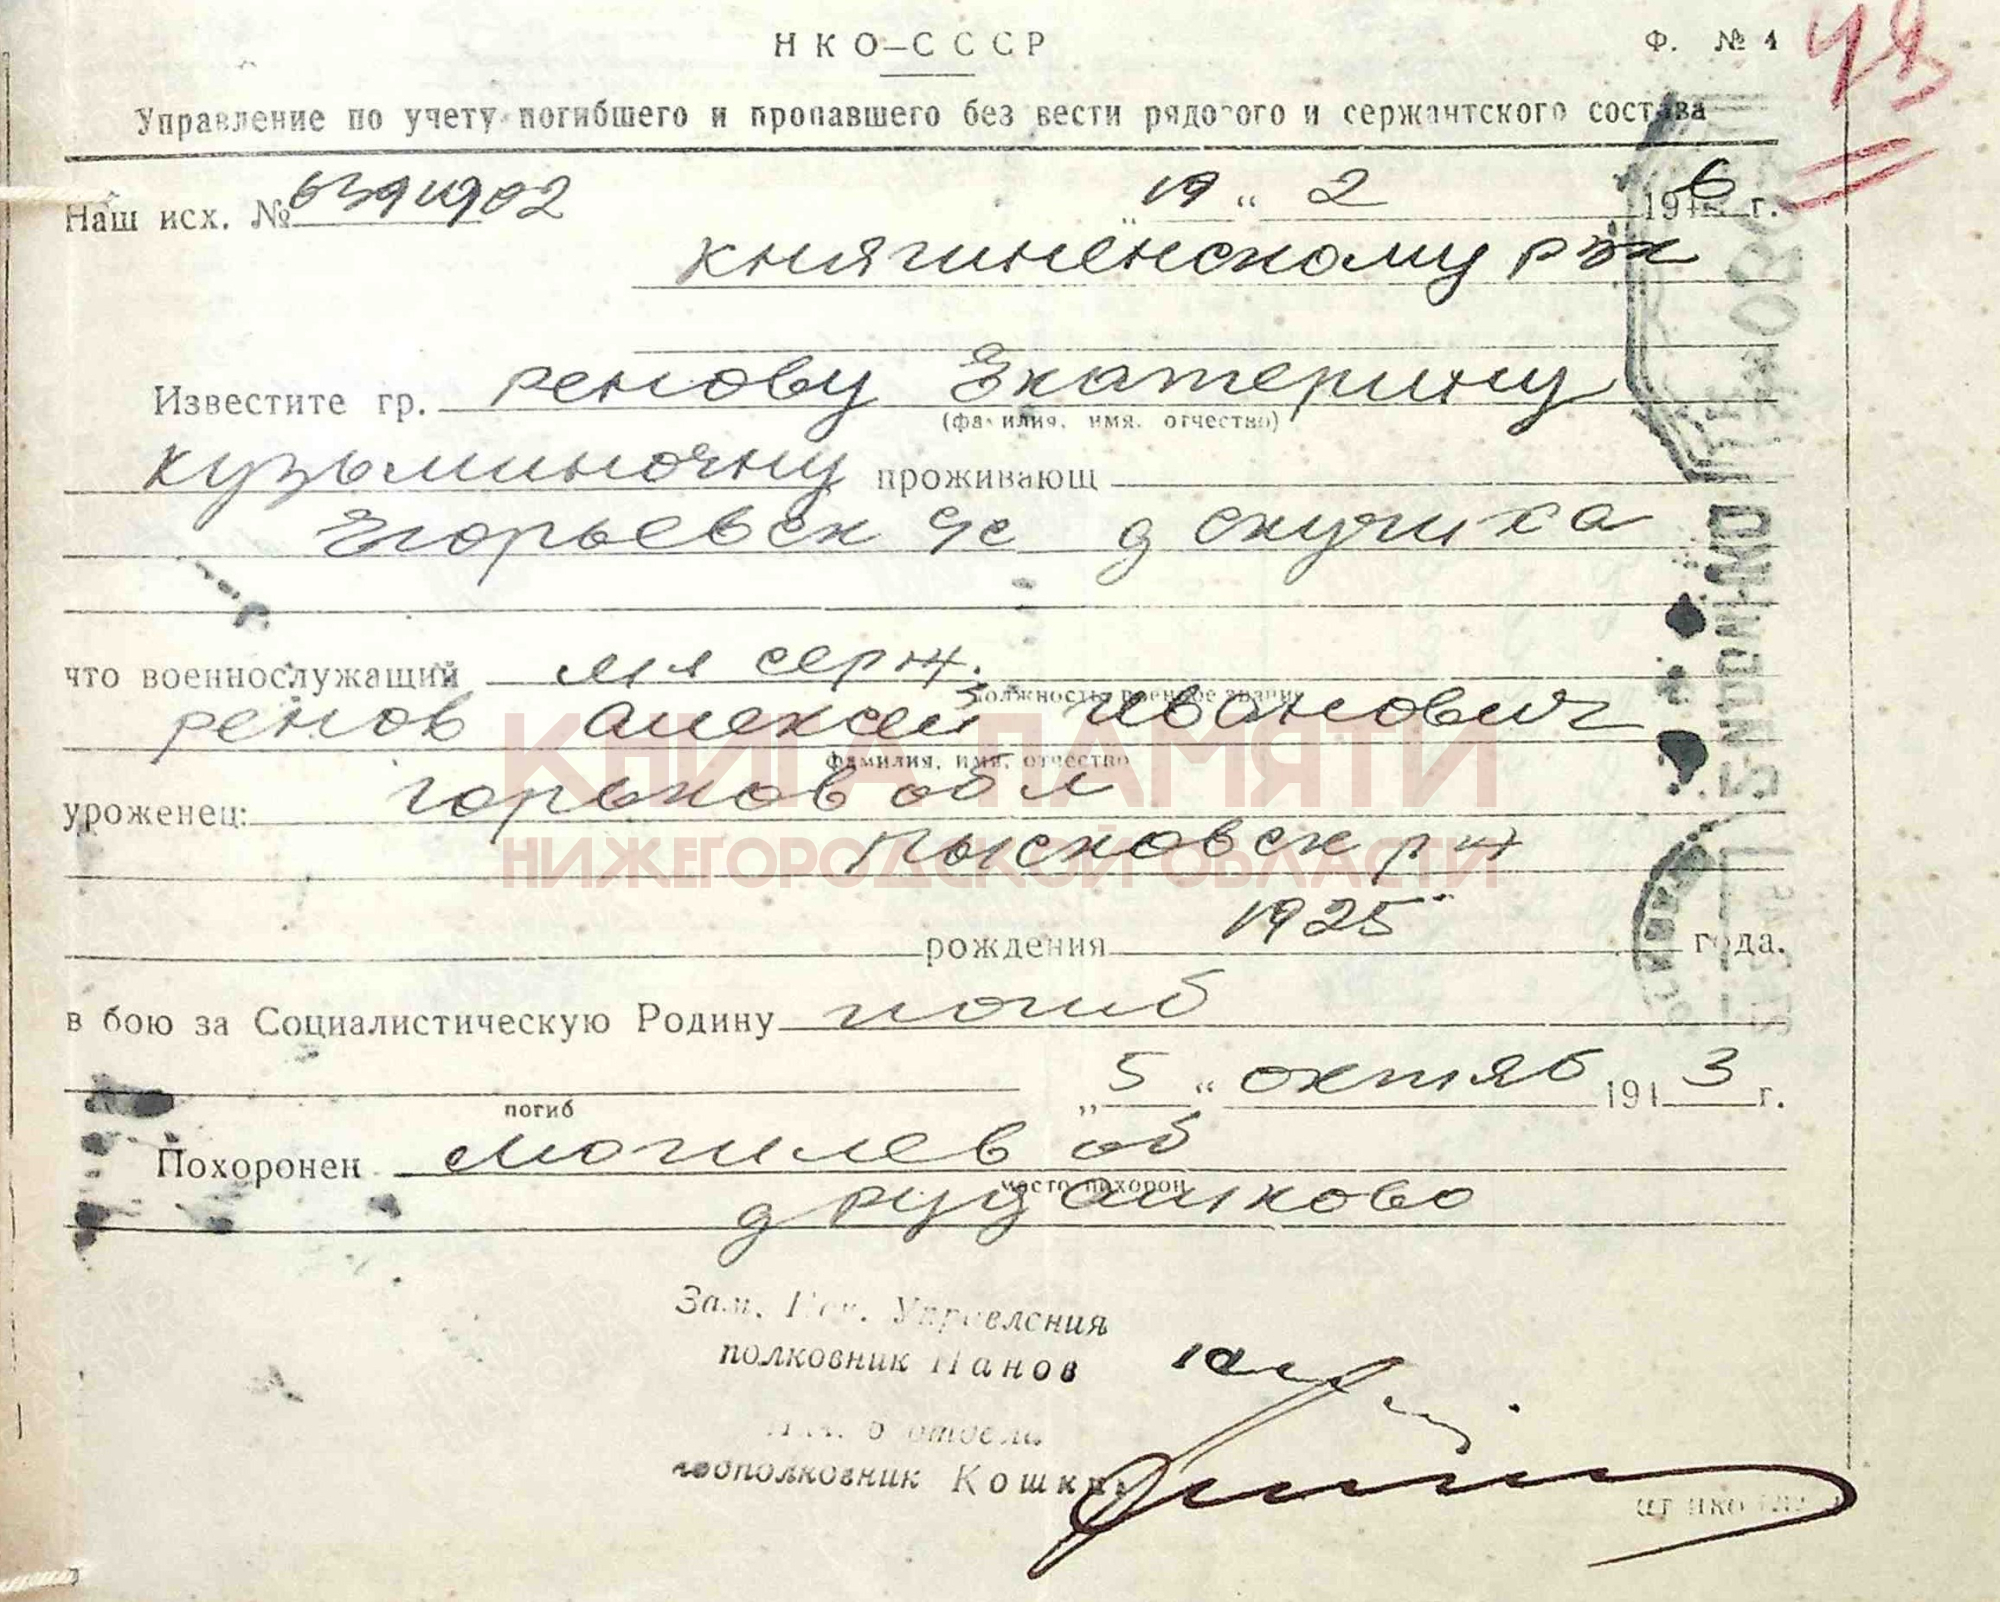 НКО-СССР
Ф. № 4
Управление по учету погибшего и пропавшего без вести рядового и сержантского состава
Наш исх. №
„19“ 2 1946 г.
княгиненскому рвк
Известите гр. Ренову Екатерину
(фамилия, имя, отчество)
Кузьминочну проживающ
Егорьевск с д Скучиха
что военнослужащий мл серж.
должность, военное звание
Ренов Алексей Иванович
фамилия, имя, отчество
уроженец: Горьков обл
Лысковск р н
рождения 1925 года.
в бою за Социалистическую Родину погиб
„5“ октяб 1943 г.
погиб
Похоронен Могилев об
место похорон
д Рудашково
Зам. Нач. Управления
полковник Панов
отдела
подполковник Кошкин
КНИГА ПАМЯТИ
НИЖЕГОРОДСКОЙ ОБЛАСТИ